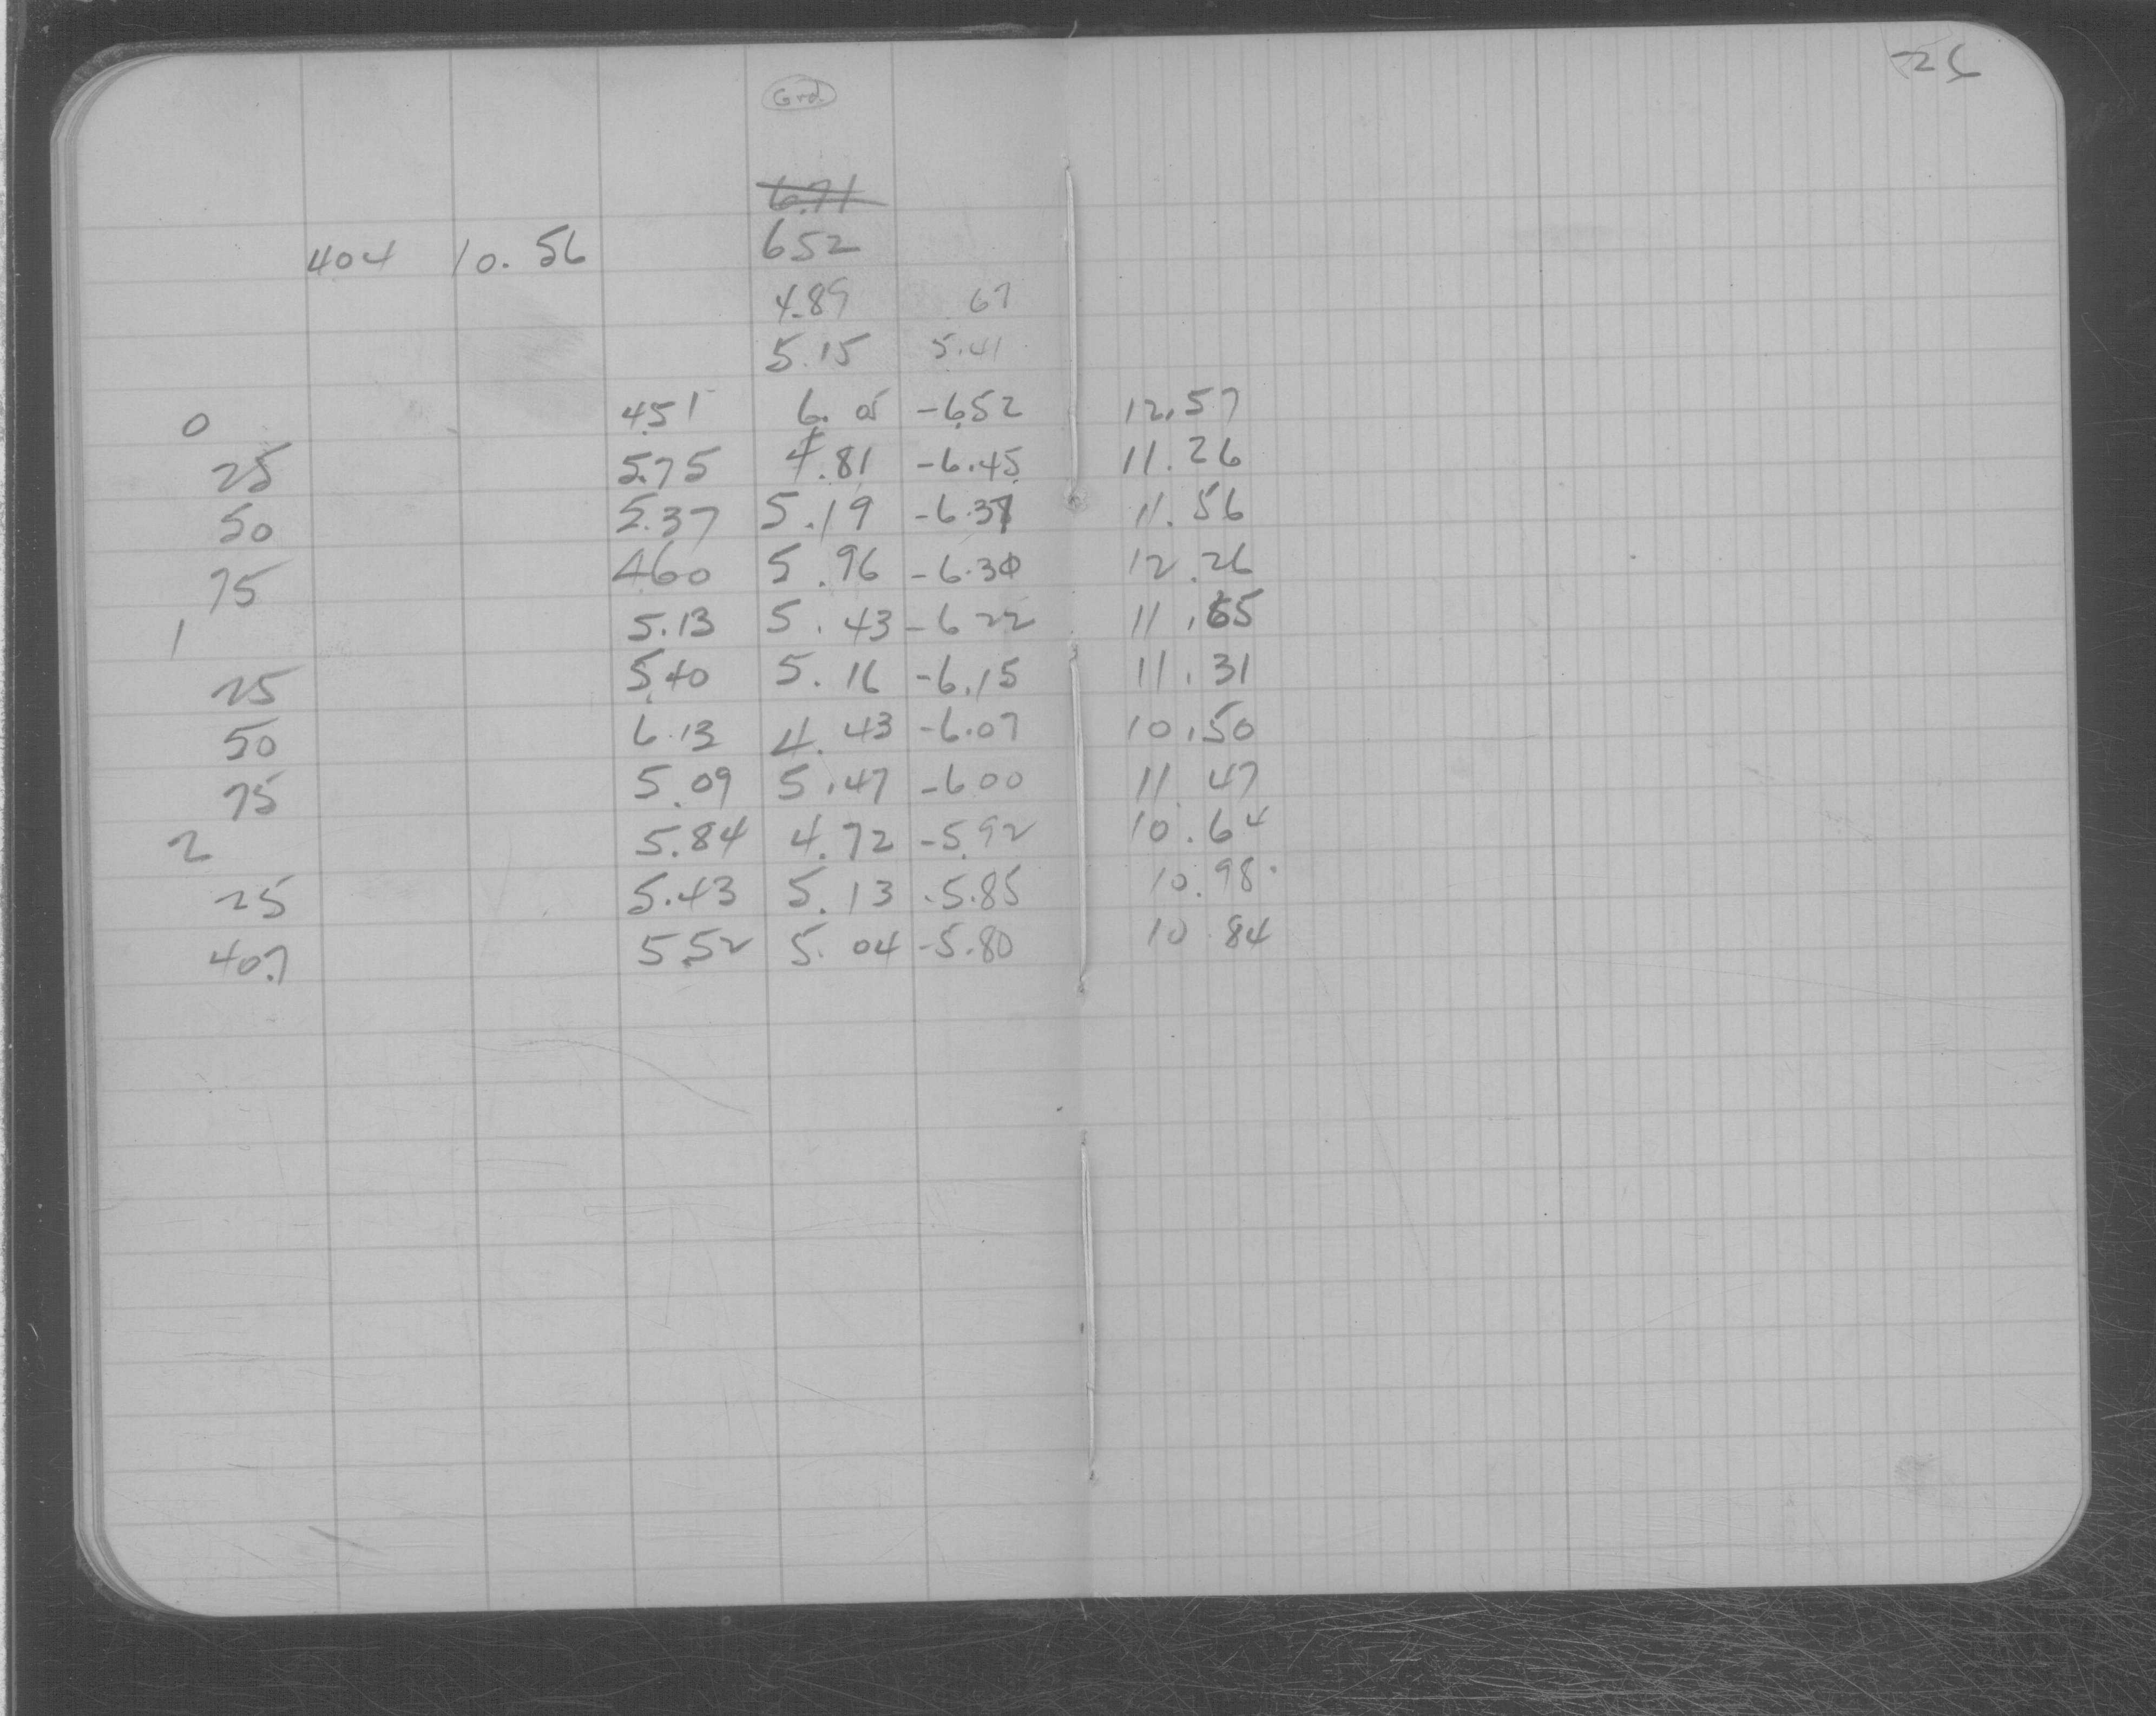 26
Grd.
6.71
404 10.56 652
4.89 67
5.15 5.41
0 4.51 6.05 -6.52 12.57
25 5.75 4.81 -6.45 11.26
50 5.37 5.19 -6.37 11.56
75 460 5.96 -6.30 12.26
1 5.13 5.43 -6 22 11.65
25 5.40 5.16 -6.15 11.31
50 6.13 4.43 -6.07 10.50
75 5.09 5.47 -6 00 11 47
2 5.84 4.72 -5.92 10.64
25 5.43 5.13 -5.85 10.98
40.7 5.52 5.04 -5.80 10.84